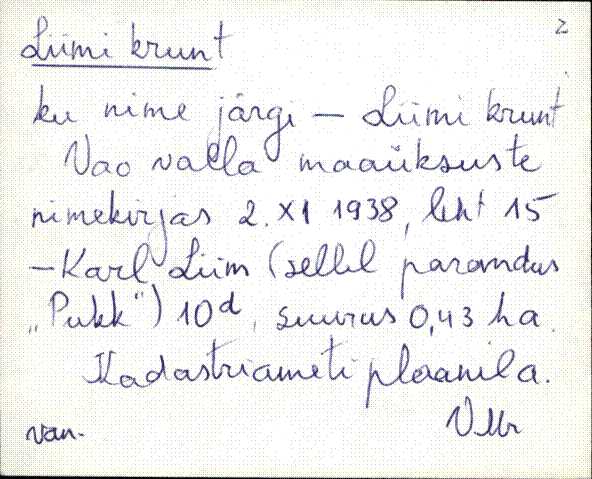 2
Liimi krunt
ku nime järgi – Liimi krunt
Vao valla maaüksuste
nimekirjas 2. XI 1938, leht 15
– Karl Liim (sellel parandus
„Pukk“) 10d, suurus 0,43 ha.
Kadastriameti plaanil a.
VMr
van.